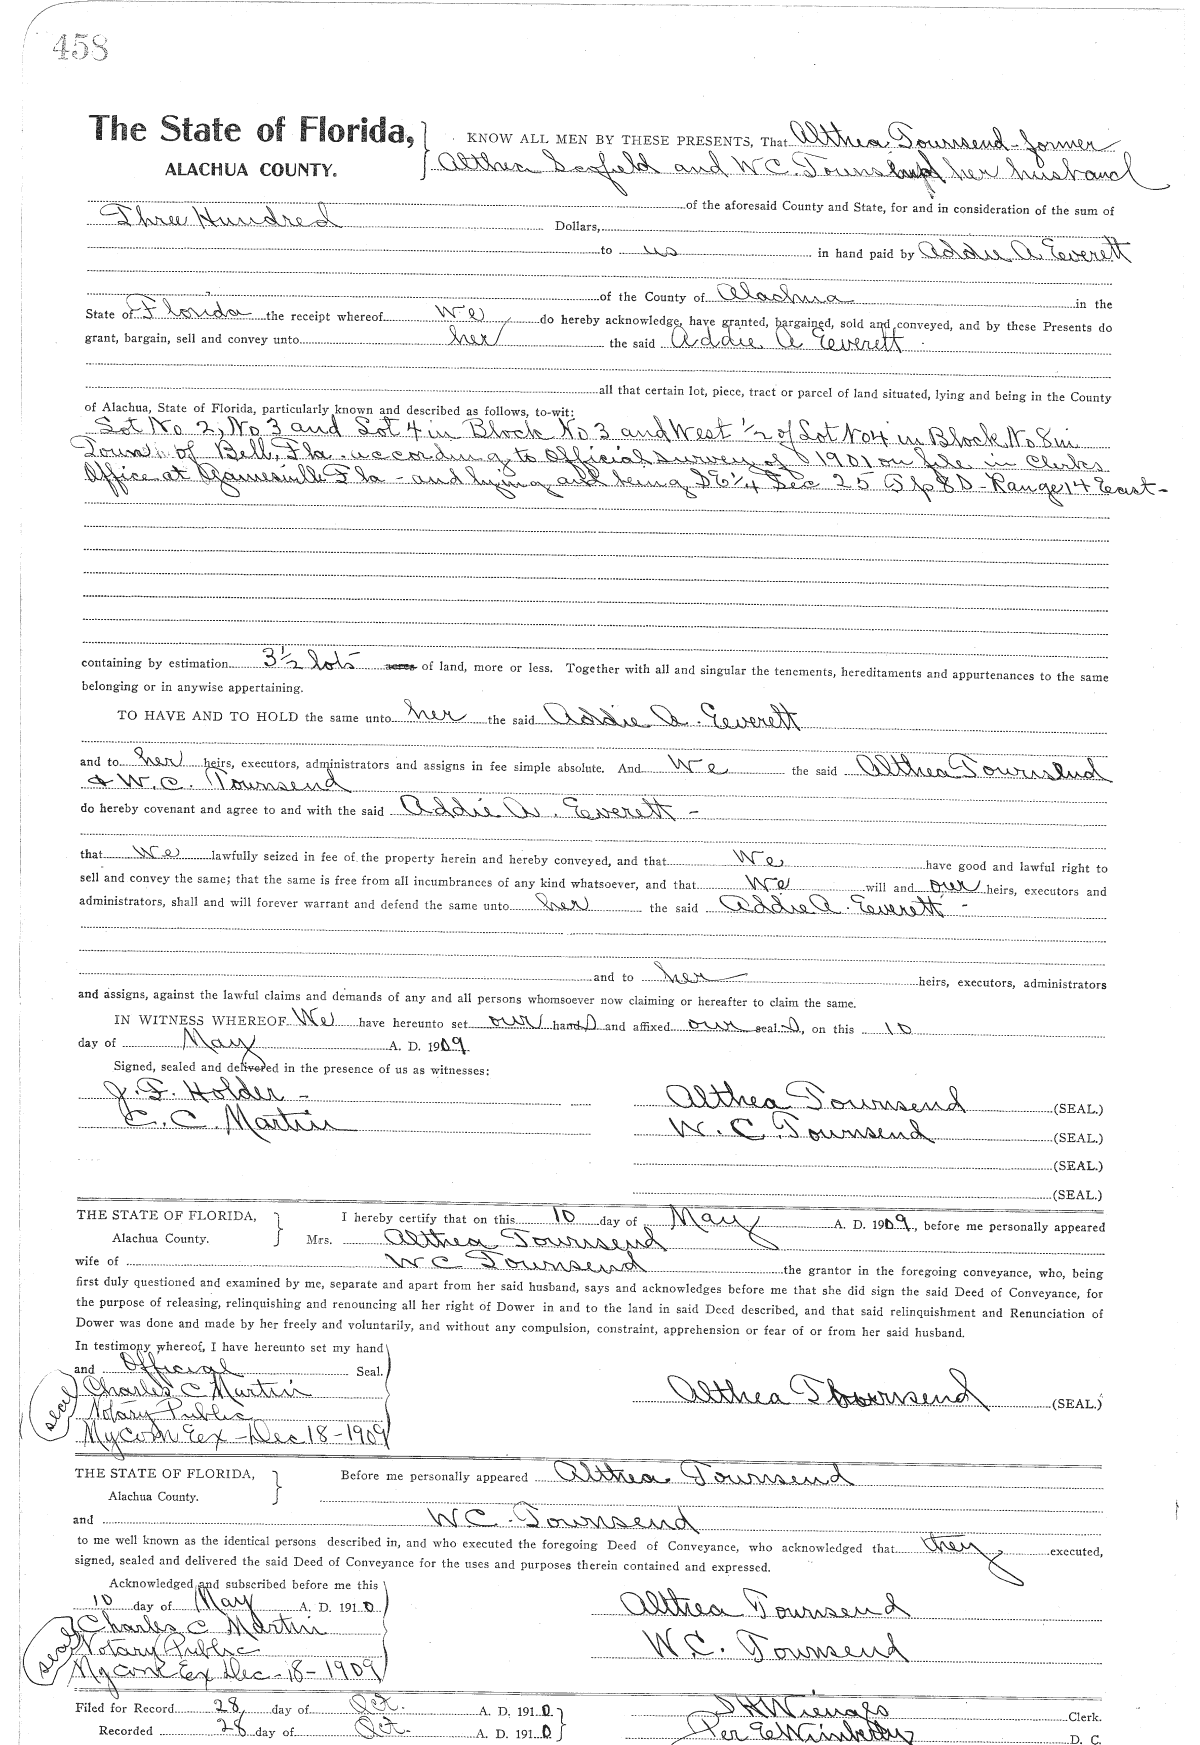 458
The State of Florida, KNOW ALL MEN BY THESE PRESENTS, That Althea Townsend - former
ALACHUA COUNTY. Althea Scofield and W C. Townsend her husband
of the aforesaid County and State, for and in consideration of the sum of
Three Hundred Dollars,
to us in hand paid by Addie A. Everett
of the County of Alachua in the
State of Florida the receipt whereof We do hereby acknowledge, have granted, bargained, sold and conveyed, and by these Presents do
grant, bargain, sell and convey unto her the said Addie A Everett
all that certain lot, piece, tract or parcel of land situated, lying and being in the County
of Alachua, State of Florida, particularly known and described as follows, to-wit:
Lot No 2, No 3 and Lot 4 in Block No 3 and West 1/2 of Lot No 4 in Block No 8 in
Town of Bell, Fla. according to Official survey of 1901 on file in Clerks
Office at Gainesville Fla - and lying and being SE 1/4 Sec 25 Tp 8 S - Range 14 East -
containing by estimation 3 1/2 lots acres of land, more or less. Together with all and singular the tenements, hereditaments and appurtenances to the same
belonging or in anywise appertaining.
TO HAVE AND TO HOLD the same unto her the said Addie A. Everett
and to her heirs, executors, administrators and assigns in fee simple absolute. And We the said Althea Townsend
& W. C. Townsend
do hereby covenant and agree to and with the said Addie A. Everett -
that We lawfully seized in fee of the property herein and hereby conveyed, and that We have good and lawful right to
sell and convey the same; that the same is free from all incumbrances of any kind whatsoever, and that We will and our heirs, executors and
administrators, shall and will forever warrant and defend the same unto her the said Addie A. Everett -
and to her heirs, executors, administrators
and assigns, against the lawful claims and demands of any and all persons whomsoever now claiming or hereafter to claim the same.
IN WITNESS WHEREOF We have hereunto set our hands and affixed our seals, on this 10
day of May A. D. 1909
Signed, sealed and delivered in the presence of us as witnesses:
J. F. Holder - Althea Townsend (SEAL.)
C. C. Martin W. C. Townsend (SEAL.)
(SEAL.)
(SEAL.)
THE STATE OF FLORIDA, I hereby certify that on this 10 day of May A. D. 1909, before me personally appeared
Alachua County. Mrs. Althea Townsend
wife of W C Townsend the grantor in the foregoing conveyance, who, being
first duly questioned and examined by me, separate and apart from her said husband, says and acknowledges before me that she did sign the said Deed of Conveyance, for
the purpose of releasing, relinquishing and renouncing all her right of Dower in and to the land in said Deed described, and that said relinquishment and Renunciation of
Dower was done and made by her freely and voluntarily, and without any compulsion, constraint, apprehension or fear of or from her said husband.
In testimony whereof, I have hereunto set my hand
and Official Seal.
Charles C Martin Althea Townsend (SEAL.)
seal Notary Public
My Com Ex - Dec 18 - 1909
THE STATE OF FLORIDA, Before me personally appeared Althea Townsend
Alachua County.
and W C. Townsend
to me well known as the identical persons described in, and who executed the foregoing Deed of Conveyance, who acknowledged that they executed,
signed, sealed and delivered the said Deed of Conveyance for the uses and purposes therein contained and expressed.
Acknowledged and subscribed before me this
10 day of May A. D. 1910 Althea Townsend
Charles C Martin
seal Notary Public W. C. Townsend
My Com Ex Dec - 18 - 1909
Filed for Record 28 day of Oct. A. D. 1910 Clerk.
Recorded 28 day of Oct. A. D. 1910 Per E Wimberly D. C.